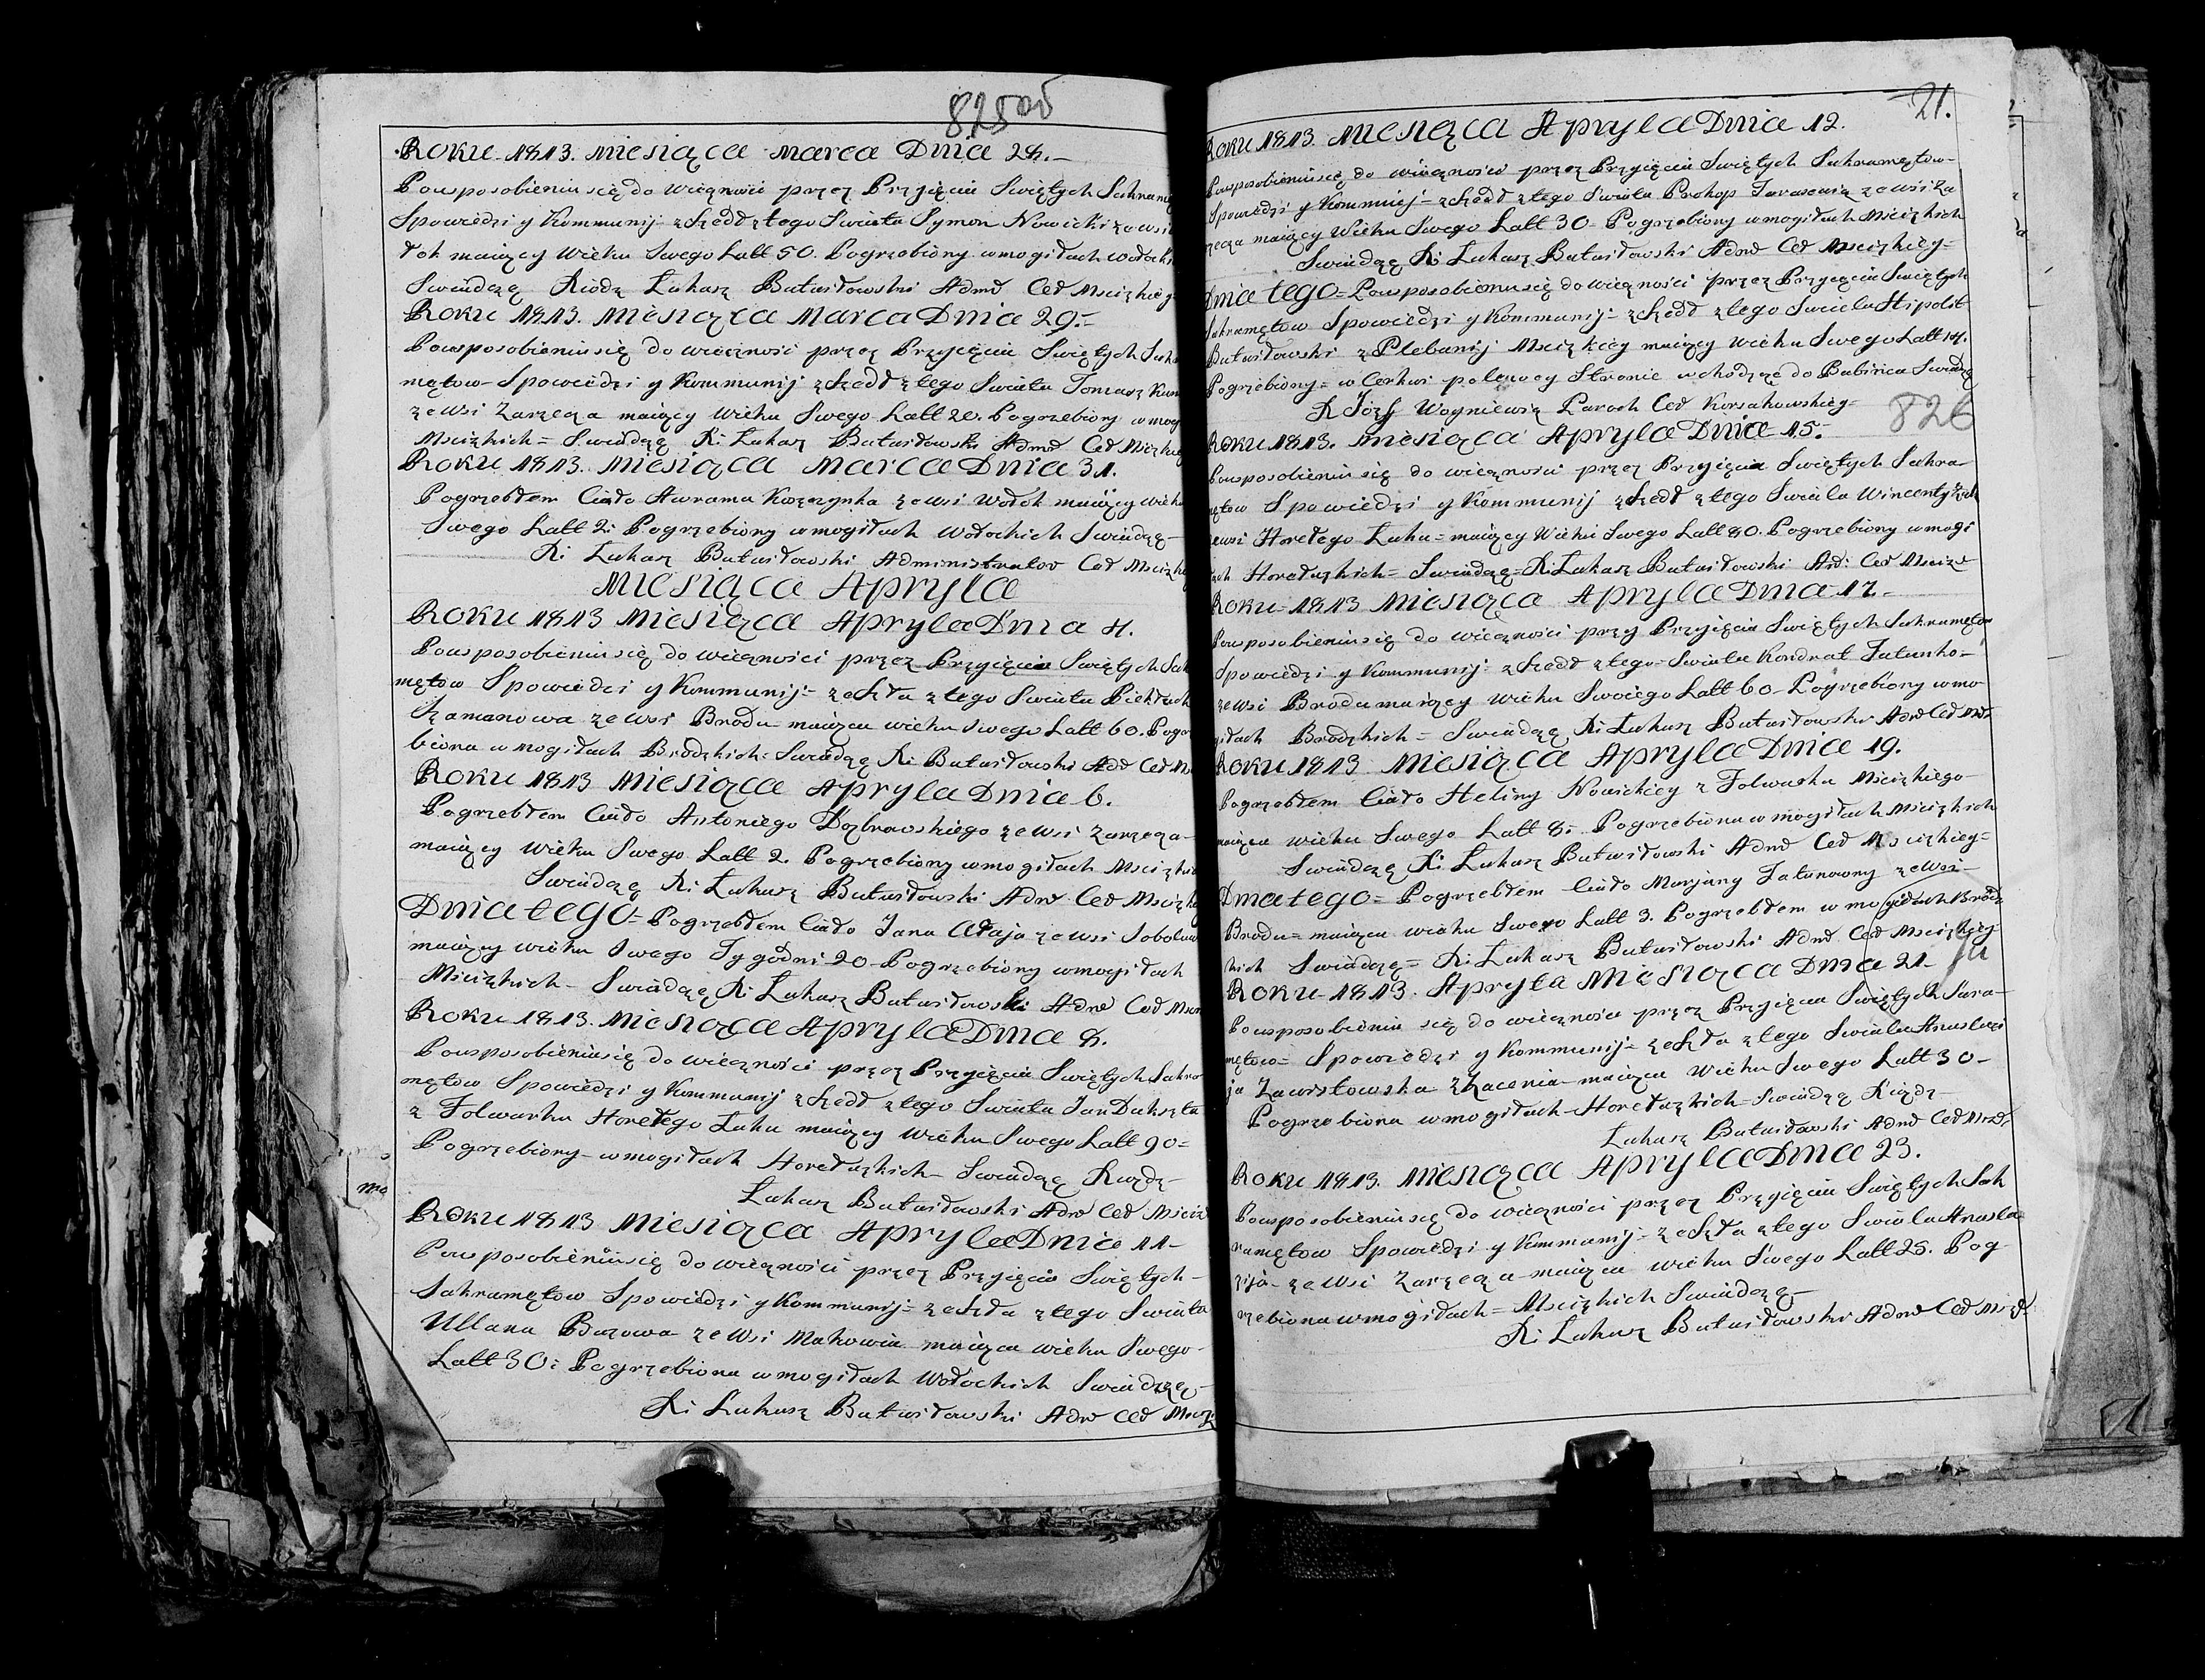 825 об
Roku 1813. Miesiąca Marca Dnia 28.
Pousposobieniusię do wieczności przez Przyięciu Swiętych
Spowiedzi y Kommunij zszedł ztego Swiata Symon Nowicki zewsi
łok maiący Wieku Swego Latt 50. Pogrzebiony wmogiłach
Swiadczę Xiądz Łukasz Butwiłowski Admr Cer
Roku 1813. Miesiąca Marca Dnia 29.
Pousposobieniusię do wieczności przez Przyięciu Swiętych
mętow Spowiedzi y Kommunij zszedł ztego Swiata Tomasz
zewsi Zarzecza maiący Wieku Swego Latt 20. Pogrzebiony w
Mscizkich = Swiadczę X: Łukasz Butwiłowski Admr Cer
Roku 1813. Miesiąca Marca Dnia 31.
Pogrzebłem Ciało Awrama zewsi Wołok maiący
Swego Latt 2: Pogrzebiony wmogiłach Wołockich Swiadczę
X: Łukasz Butwiłowski Administrator Cer
Miesiąca Apryla
Roku 1813 Miesiąca Apryla Dnia 4.
Pousposobieniusię do wieczności przez Przyięciu Swiętych
mętow Spowiedzi y Kommunij = zeszła ztego Swiata
zewsi Brodu maiąca wieku Swego Latt 60.
biona wmogiłach Brodzkich = Swiadczę X: Butwiłowski Adr Cer
Roku 1813 Miesiąca Apryla Dnia 6.
Pogrzebłem Ciało Antoniego Dąbrowskiego zewsi Zarzecza
maiący Wieku Swego Latt 2. Pogrzebiony wmogiłach
Swiadczę X: Łukasz Butwiłowski Admr Cer
Dnia tego = Pogrzebłem Ciało Jana zewsi
maiący wieku Swego Tygodni 20 Pogrzebiony wmogiłach
Mscizkich Swiadczę X: Łukasz Butwiłowski Admr Cer
Roku 1813. Miesiąca Apryla Dnia 8.
Pousposobieniusię do wieczności przez Przyięciu Swiętych
mętow Spowiedzi y Kommunij zszedł ztego Swiata Jan
z Folwarku Horełego Ługu maiący Wieku Swego Latt 90 =
Pogrzebiony wmogiłach Horełuzkich Swiadczę Xiądz
Łukasz Butwiłowski Admr Cer
Roku 1813 Miesiąca Apryla Dnia 11
Pousposobieniusię do wieczności przez Przyięciu Swiętych
Sakramętow Spowiedzi y Kommunij = zeszła ztego Swiata
Ullana zewsi maiąca wieku Swego
Latt 30: Pogrzebiona wmogiłach Wołockich Swiadczę
X: Łukasz Butwiłowski Admr Cer
21.
Roku 1813. Miesiąca Apryla Dnia 12.
Pousposobieniusię do wieczności przez Przyięciu Swiętych Sakramętow
Spowiedzi y Kommunij = zszedł ztego Swiata Prokop zewsi Za
rzecza maiący Wieku Swego Latt 30 Pogrzebiony wmogiłach Mscizkich
Swiadczę X: Łukasz Butwiłowski Admr Cer Mscizkiey =
Dnia tego = Pousposobieniusię do wieczności przez Przyięciu Swiętych
Sakramętow Spowiedzi y Kommunij = zszedł ztego Swiata Hipolit
Butwiłowski z Plebanij Mscizkiey maiący Wieku Swego Latt 14.
Pogrzebiony = w Cerkwi polewey Stronie wchodząc do Babinca Swiadczę
X Józef Woyniewicz Paroch Cer Korsakowskiey =
826
Roku 1813. Miesiąca Apryla Dnia 15.
Pousposobieniusię do wieczności przez Przyięciu Swiętych Sakra
mętow Spowiedzi y Kommunij zszedł ztego Swiata Wincenty
zewsi Horełego Ługu = maiący Wieku Swego Latt 80. Pogrzebiony wmogi
łach Horełuzkich = Swiadczę = X: Łukasz Butwiłowski Ad: Cer
Roku 1813 Miesiąca Apryla Dnia 17
Pousposobieniusię do wieczności przez Przyięciu Swiętych Sakramętow
Spowiedzi y Kommunij = zszedł ztego Swiata Kondrat
zewsi Brodu maiący Wieku Swoiego Latt 60 Pogrzebiony wmo
giłach Brodzkich = Swiadczę X: Łukasz Butwiłowski Admr Cer
Roku 1813 Miesiąca Apryla Dnia 19.
Pogrzebłem Ciało Heliny Nowickiey z Folwarku Mscizkiego
maiąca wieku Swego Latt 8. Pogrzebiona w mogiłach Mscizkich
Swiadczę X: Łukasz Butwiłowski Admr Cer Mscizkiey =
Dnia tego = Pogrzebłem Ciało Maryany zewsi
Brodu = maiąca wieku Swego Latt 3. Pogrzebłem w mogiłach Brodz
kich Swiadczę = X: Łukasz Butwiłowski Admr Cer Mscizkiey
Roku 1813. Apryla Miesiąca Dnia 21
Pousposobieniu się do wieczności przez Przyięciu Swiętych Sara
mętow = Spowiedzi y Kommunij = zeszła ztego Swiata Anastazi
ja Zawistowska maiąca Wieku Swego Latt 30
Pogrzebiona wmogiłach Horełuzkich = Swiadczę Xiądz
Łukasz Butwiłowski Admr Cer
Roku 1813. Miesiąca Apryla Dnia 23.
Pousposobieniusię do wieczności przez Przyięciu Swiętych Sak
ramętow Spowiedzi y Kommunij = zeszła ztego Swiata Anasta
zija zewsi Zarzecza maiąca wieku Swego Latt 25. Pog
rzebiona wmogiłach = Mscizkich Swiadczę
X: Łukasz Butwiłowski Admr Cer